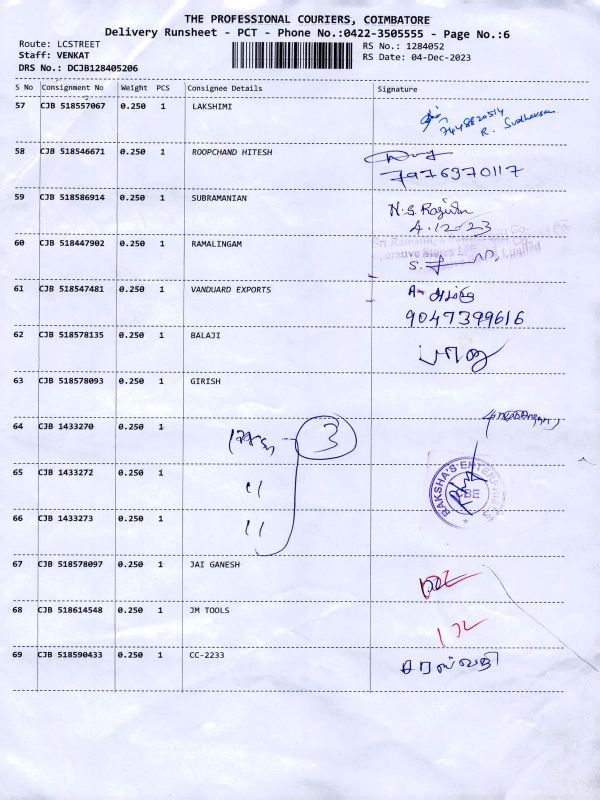 THE PROFESSIONAL COURIERS, COIMBATORE
Delivery Runsheet - PCT - Phone No.:0422-3505555 - Page No.:6
Route: LCSTREET
RS No.: 1284052
Staff: VENKAT
RS Date: 04-Dec-2023
DRS No.: DCJB128405206
S No Consignment No Weight PCS Consignee Details Signature
57 CJB 518557067 0.250 1 LAKSHIMI
R. Sudharsan
58 CJB 518546671 0.250 1 ROOPCHAND HITESH
7976370117
59 CJB 518586914 0.250 1 SUBRAMANIAN
4.12.23
60 CJB 518447902 0.250 1 RAMALINGAM
61 CJB 518547481 0.250 1 VANDUARD EXPORTS
9047399616
62 CJB 518578135 0.250 1 BALAJI
63 CJB 518578093 0.250 1 GIRISH
64 CJB 1433270 0.250 1
3
65 CJB 1433272 0.250 1
"
RAKSHA'S ENTERPRISES
66 CJB 1433273 0.250 1
"
67 CJB 518578097 0.250 1 JAI GANESH
68 CJB 518614548 0.250 1 JM TOOLS
69 CJB 518590433 0.250 1 CC-2233
சரஸ்வதி